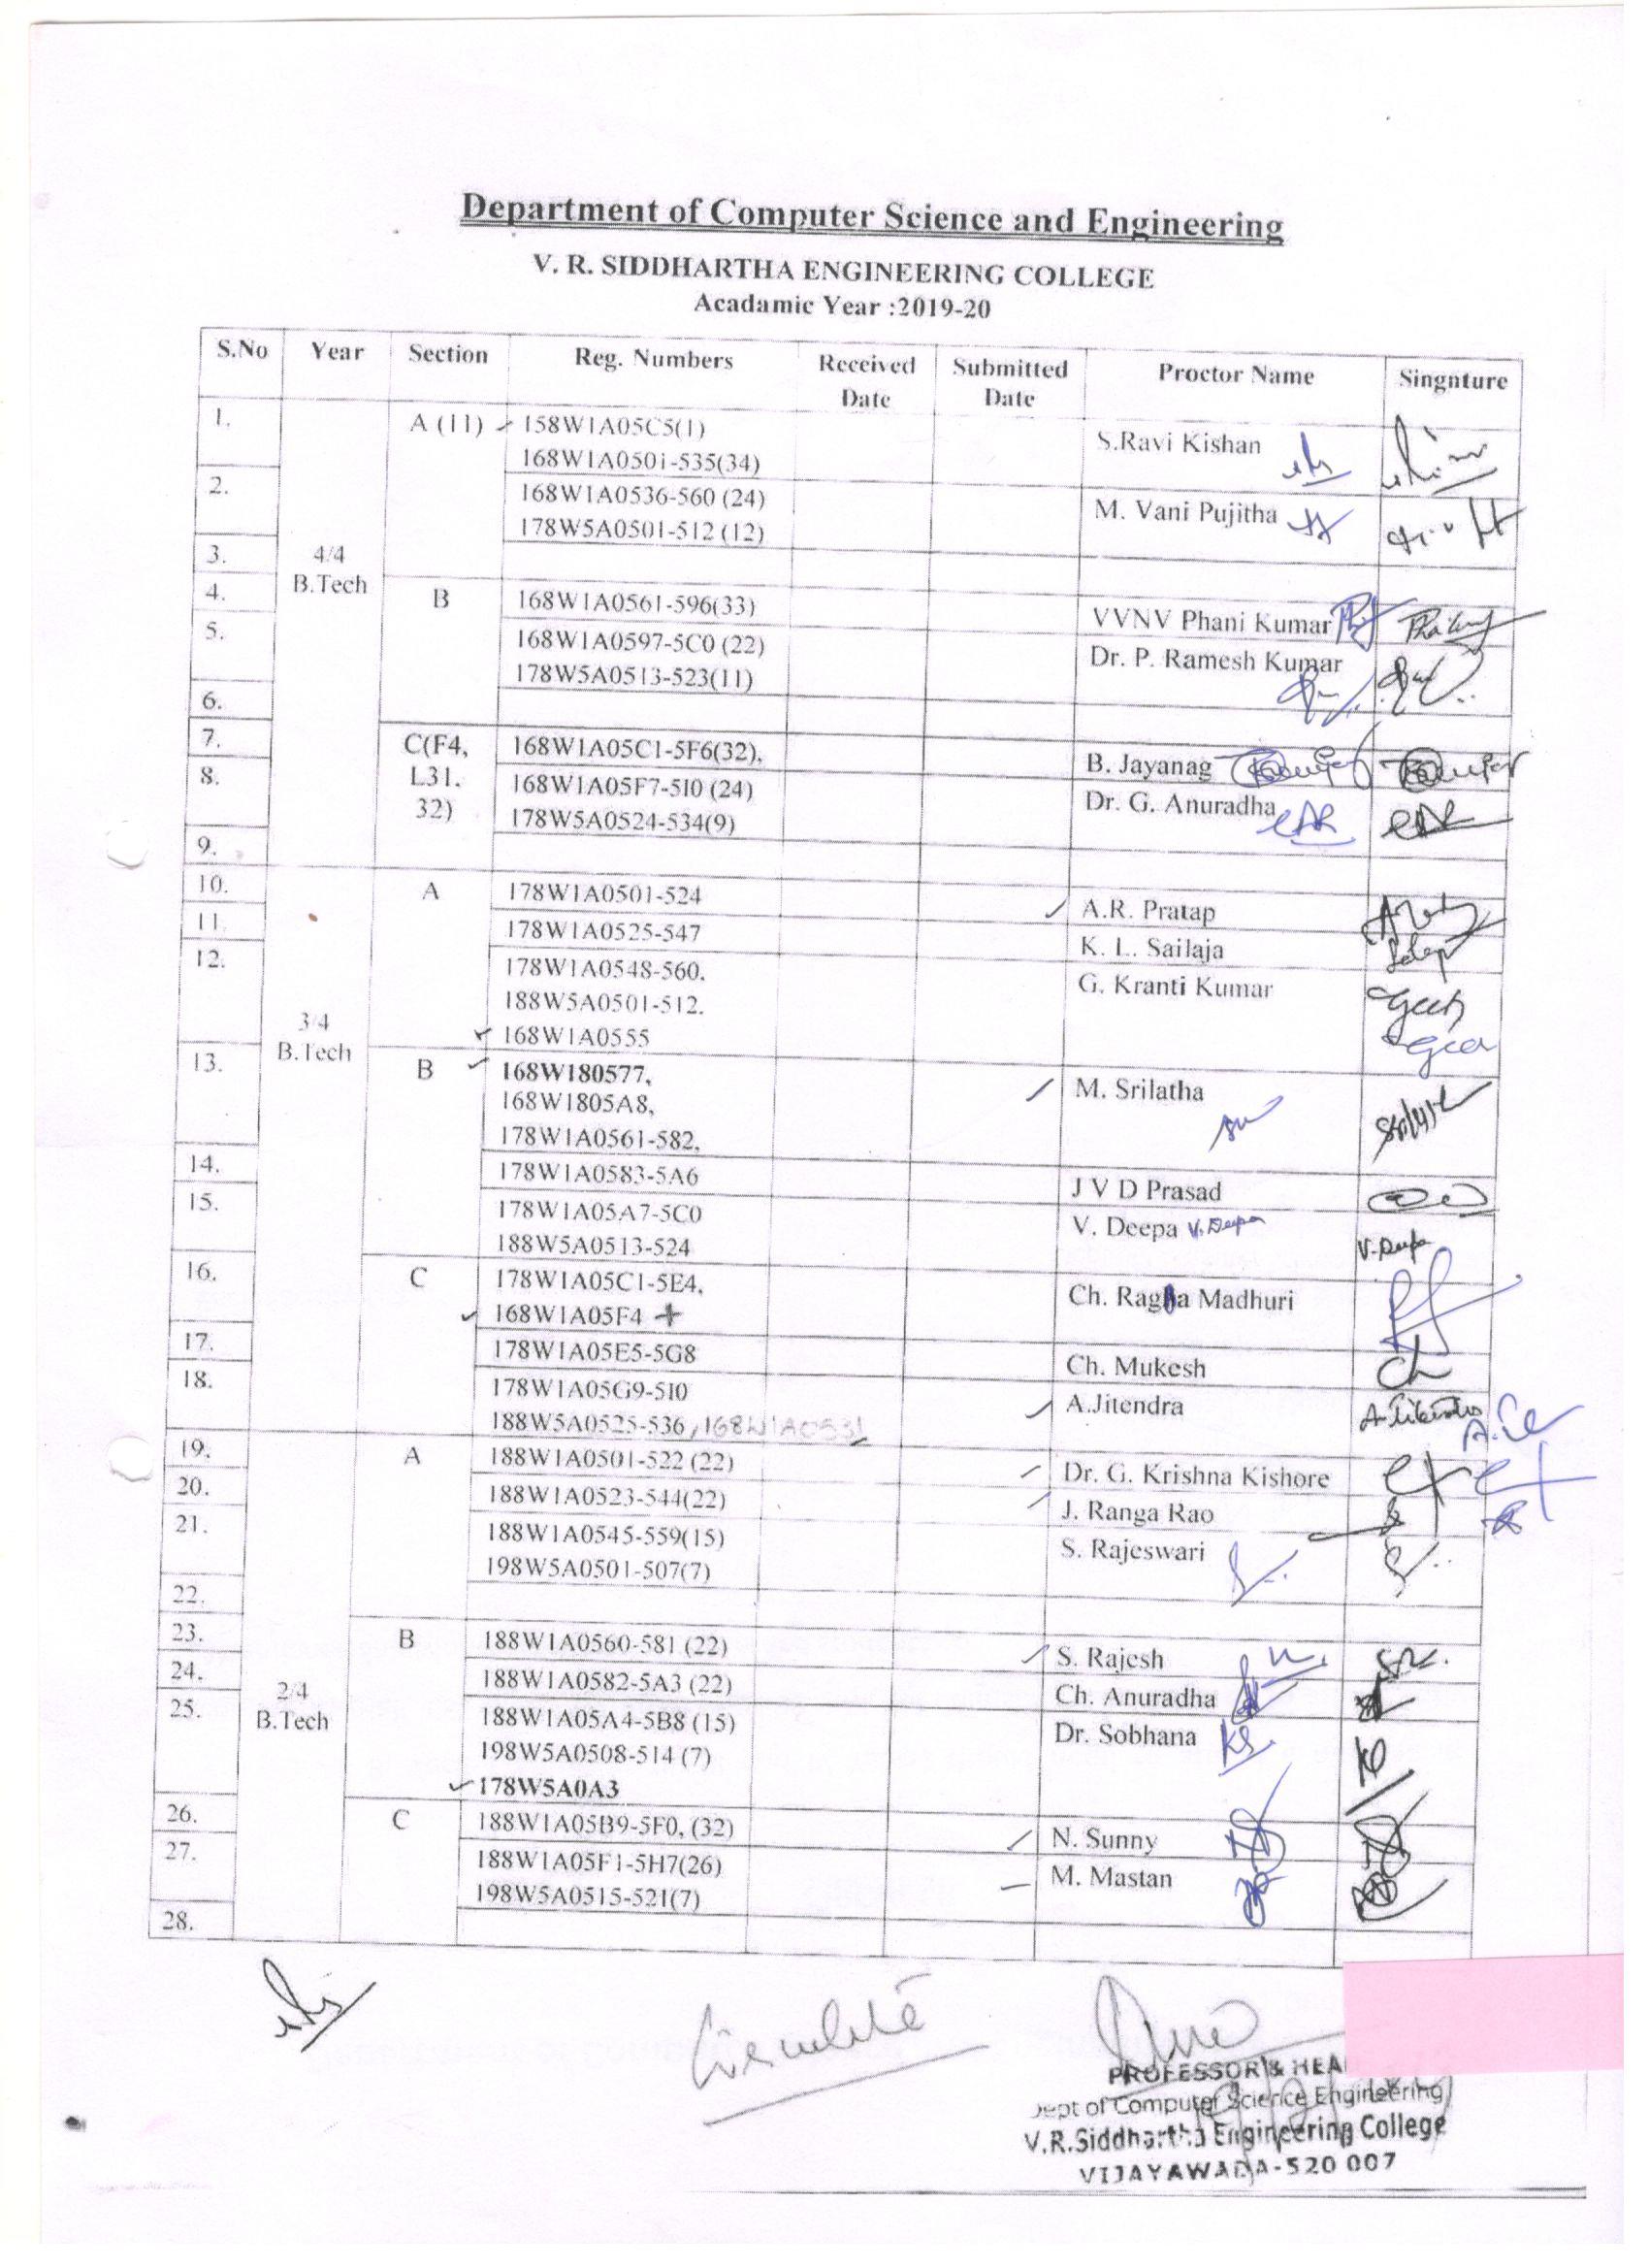 Department of Computer Science and Engineering
V. R. SIDDHARTHA ENGINEERING COLLEGE
Acadamic Year :2019-20
S.No Year Section Reg. Numbers Received Date Submitted Date Proctor Name Singnture
1. 4/4 B.Tech A (11) 158W1A05C5(1) S.Ravi Kishan
168W1A0501-535(34)
2. 168W1A0536-560 (24) M. Vani Pujitha
178W5A0501-512 (12)
3.
4. B 168W1A0561-596(33) VVNV Phani Kumar
5. 168W1A0597-5C0 (22) Dr. P. Ramesh Kumar
178W5A0513-523(11)
6.
7. C(F4, L31. 32) 168W1A05C1-5F6(32), B. Jayanag
8. 168W1A05F7-5I0 (24) Dr. G. Anuradha
178W5A0524-534(9)
9.
10. 3/4 B.Tech A 178W1A0501-524 A.R. Pratap
11. 178W1A0525-547 K. L. Sailaja
12. 178W1A0548-560. G. Kranti Kumar
188W5A0501-512.
168W1A0555
13. B 168W180577, M. Srilatha
168W1805A8,
178W1A0561-582,
14. 178W1A0583-5A6 J V D Prasad
15. 178W1A05A7-5C0 V. Deepa V. Deepa V. Deepa
188W5A0513-524
16. C 178W1A05C1-5E4, Ch. Ragha Madhuri
168W1A05F4 +
17. 178W1A05E5-5G8 Ch. Mukesh Ch
18. 178W1A05G9-5I0 A.Jitendra
188W5A0525-536, 168W1A0531
19. 2/4 B.Tech A 188W1A0501-522 (22) Dr. G. Krishna Kishore
20. 188W1A0523-544(22) J. Ranga Rao
21. 188W1A0545-559(15) S. Rajeswari
198W5A0501-507(7)
22.
23. B 188W1A0560-581 (22) S. Rajesh
24. 188W1A0582-5A3 (22) Ch. Anuradha
25. 188W1A05A4-5B8 (15) Dr. Sobhana
198W5A0508-514 (7)
178W5A0A3
26. C 188W1A05B9-5F0, (32) N. Sunny
27. 188W1A05F1-5H7(26) M. Mastan
198W5A0515-521(7)
28.
PROFESSOR & HEA
Dept of Computer Science Engineering
V.R.Siddhartha Engineering College
VIJAYAWADA-520 007